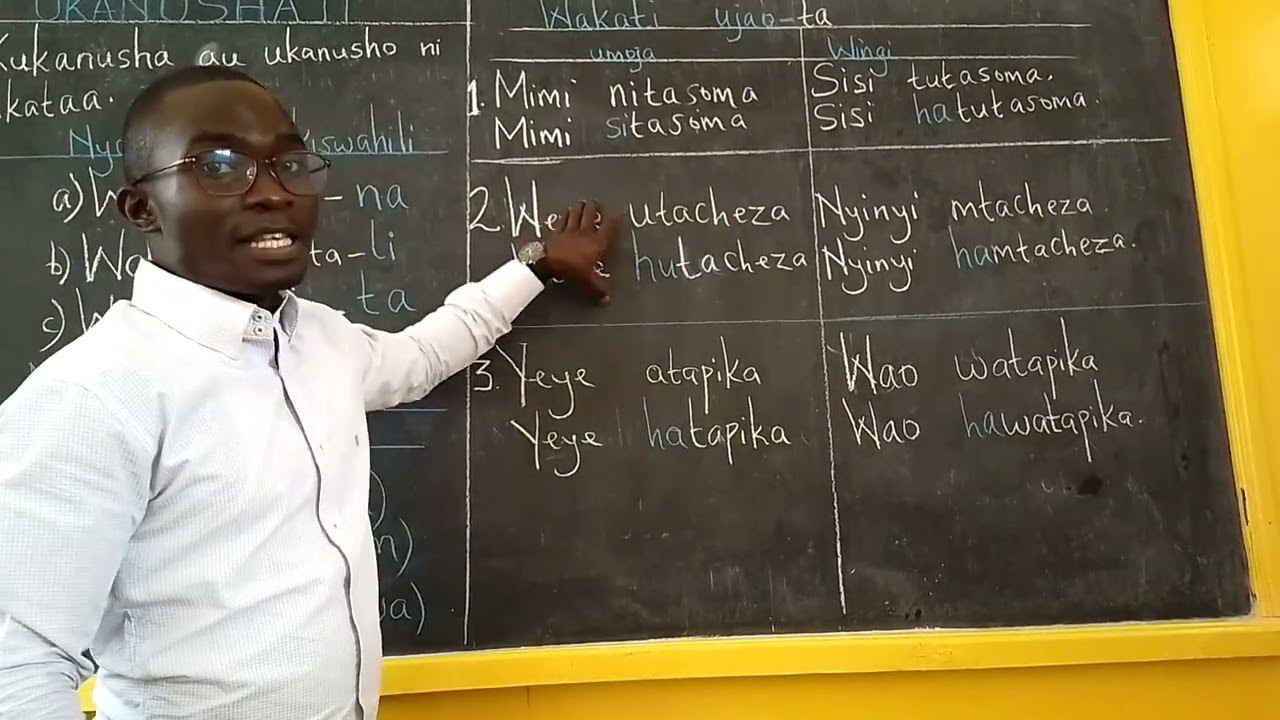 UKANUSHAJI
Kukanusha au ukanusho ni
kataa.
kiswahili
a) - na
b) ta-li
c) - ta
Wakati ujao-ta
umoja Wingi
1. Mimi nitasoma Sisi tutasoma.
Mimi sitasoma Sisi hatutasoma.
2. utacheza Nyinyi mtacheza.
hutacheza Nyinyi hamtacheza.
3. Yeye atapika Wao watapika
Yeye hatapika. Wao hawatapika.